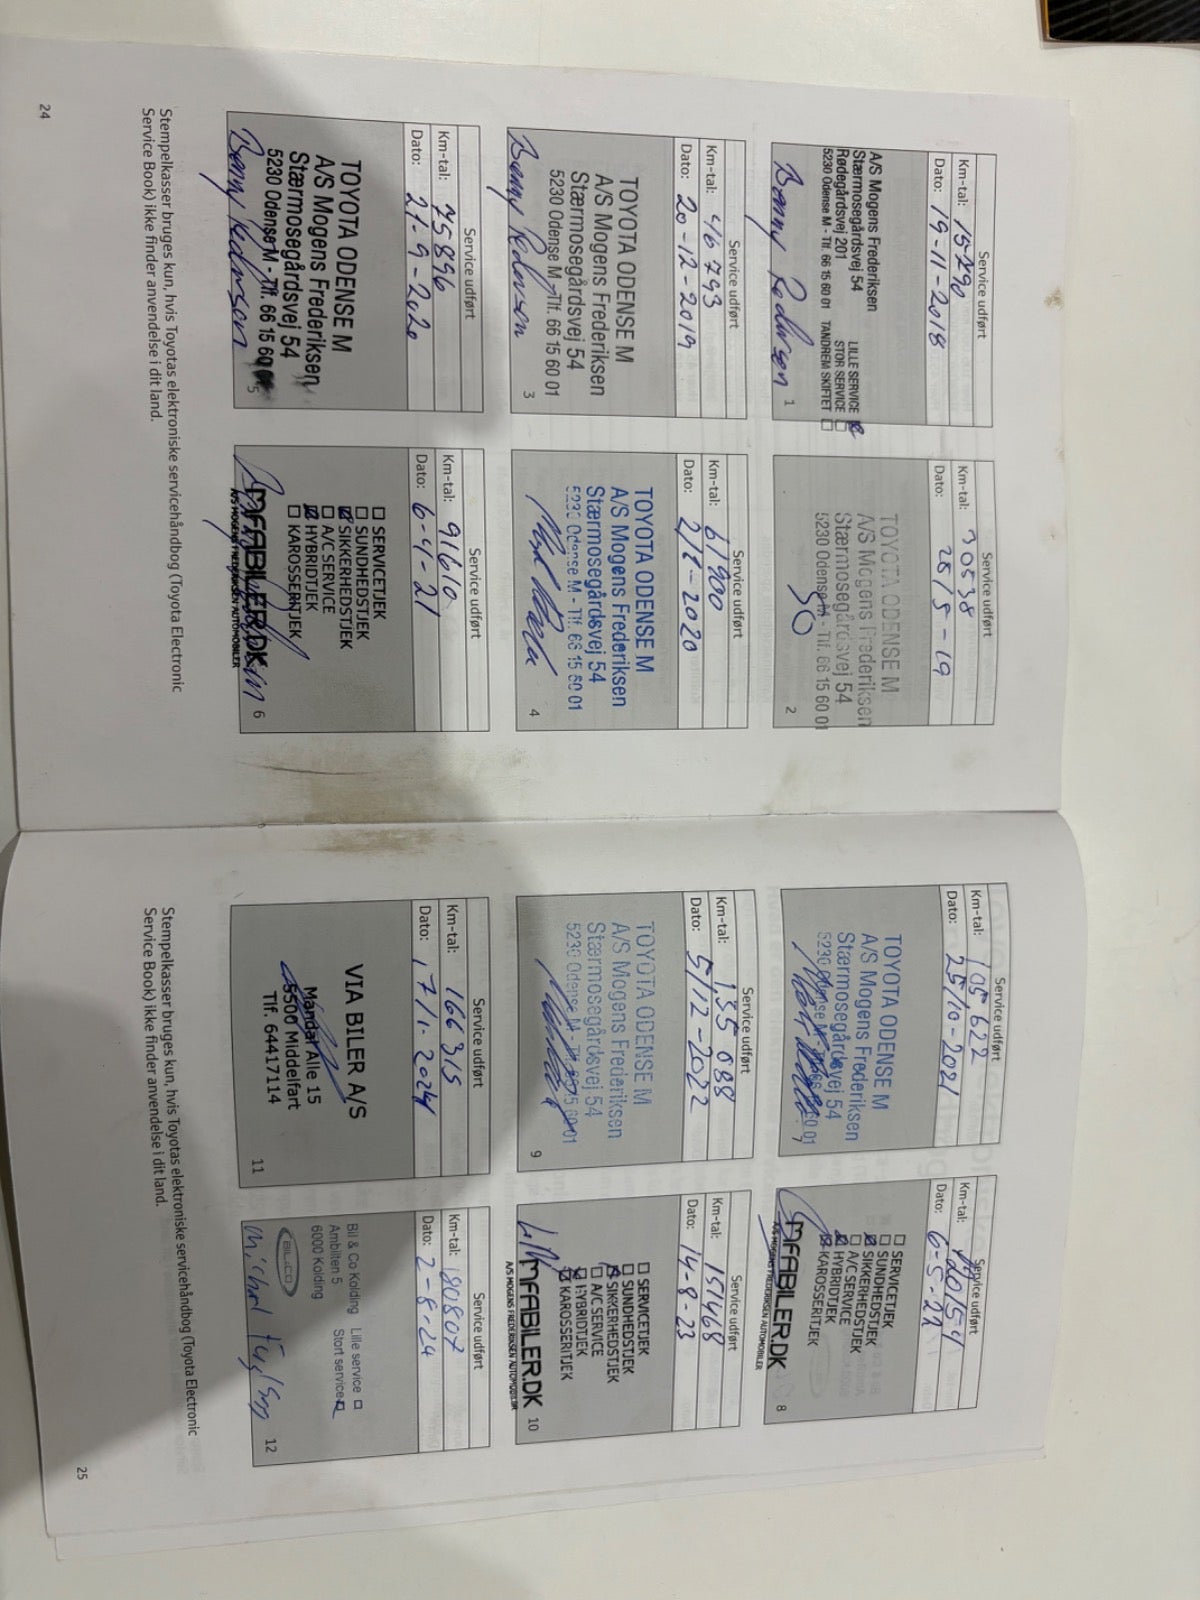 Service udført
Km-tal: 15290
Dato: 19-11-2018
A/S Mogens Frederiksen
Stærmosegårdsvej 54 LILLE SERVICE
Rødegårdsvej 201 STOR SERVICE
5230 Odense M - Tlf. 66 15 60 01 TANDREM SKIFTET
Benny Pedersen
1
Service udført
Km-tal: 30538
Dato: 28/5-19
TOYOTA ODENSE M
A/S Mogens Frederiksen
Stærmosegårdsvej 54
5230 Odense M - Tlf. 66 15 60 01
2
Service udført
Km-tal: 46793
Dato: 20-12-2019
TOYOTA ODENSE M
A/S Mogens Frederiksen
Stærmosegårdsvej 54
5230 Odense M - Tlf. 66 15 60 01
Benny Pedersen
3
Service udført
Km-tal: 61900
Dato:
TOYOTA ODENSE M
A/S Mogens Frederiksen
Stærmosegårdsvej 54
5230 Odense M - Tlf. 66 15 60 01
4
Service udført
Km-tal: 75896
Dato: 21-9-2020
TOYOTA ODENSE M
A/S Mogens Frederiksen
Stærmosegårdsvej 54
5230 Odense M - Tlf. 66 15 60
Benny Pedersen
5
Service udført
Km-tal: 91610
Dato: 6-4-21
SERVICETJEK
SUNDHEDSTJEK
SIKKERHEDSTJEK
A/C SERVICE
HYBRIDTJEK
KAROSSERITJEK
MFABILER.DK
A/S MOGENS FREDERIKSEN AUTOMOBILER
6
Stempelkasser bruges kun, hvis Toyotas elektroniske servicehåndbog (Toyota Electronic
Service Book) ikke finder anvendelse i dit land.
24
Service udført
Km-tal: 105622
Dato: 25/10-2021
TOYOTA ODENSE M
A/S Mogens Frederiksen
Stærmosegårdsvej 54
5230 Odense M - Tlf. 66 15 60 01
7
Km-tal: 120154
Dato: 6-5-22
SERVICETJEK
SUNDHEDSTJEK
SIKKERHEDSTJEK
A/C SERVICE
HYBRIDTJEK
KAROSSERITJEK
MFABILER.DK
A/S MOGENS FREDERIKSEN AUTOMOBILER
8
Service udført
Km-tal: 135 088
Dato: 5/12-2022
TOYOTA ODENSE M
A/S Mogens Frederiksen
Stærmosegårdsvej 54
5230 Odense M - Tlf. 66 15 60 01
9
Service udført
Km-tal: 151468
Dato: 14-8-23
SERVICETJEK
SUNDHEDSTJEK
SIKKERHEDSTJEK
A/C SERVICE
HYBRIDTJEK
KAROSSERITJEK
MFABILER.DK
A/S MOGENS FREDERIKSEN AUTOMOBILER
10
Service udført
Km-tal: 166315
Dato: 17/1-2024
VIA BILER A/S
Mandal Alle 15
5500 Middelfart
Tlf. 64417114
11
Service udført
Km-tal: 180807
Dato: 2-8-24
Bil & Co Kolding Lille service
Ambilten 5 Stort service
6000 Kolding
BIL&CO
12
Stempelkasser bruges kun, hvis Toyotas elektroniske servicehåndbog (Toyota Electronic
Service Book) ikke finder anvendelse i dit land.
25